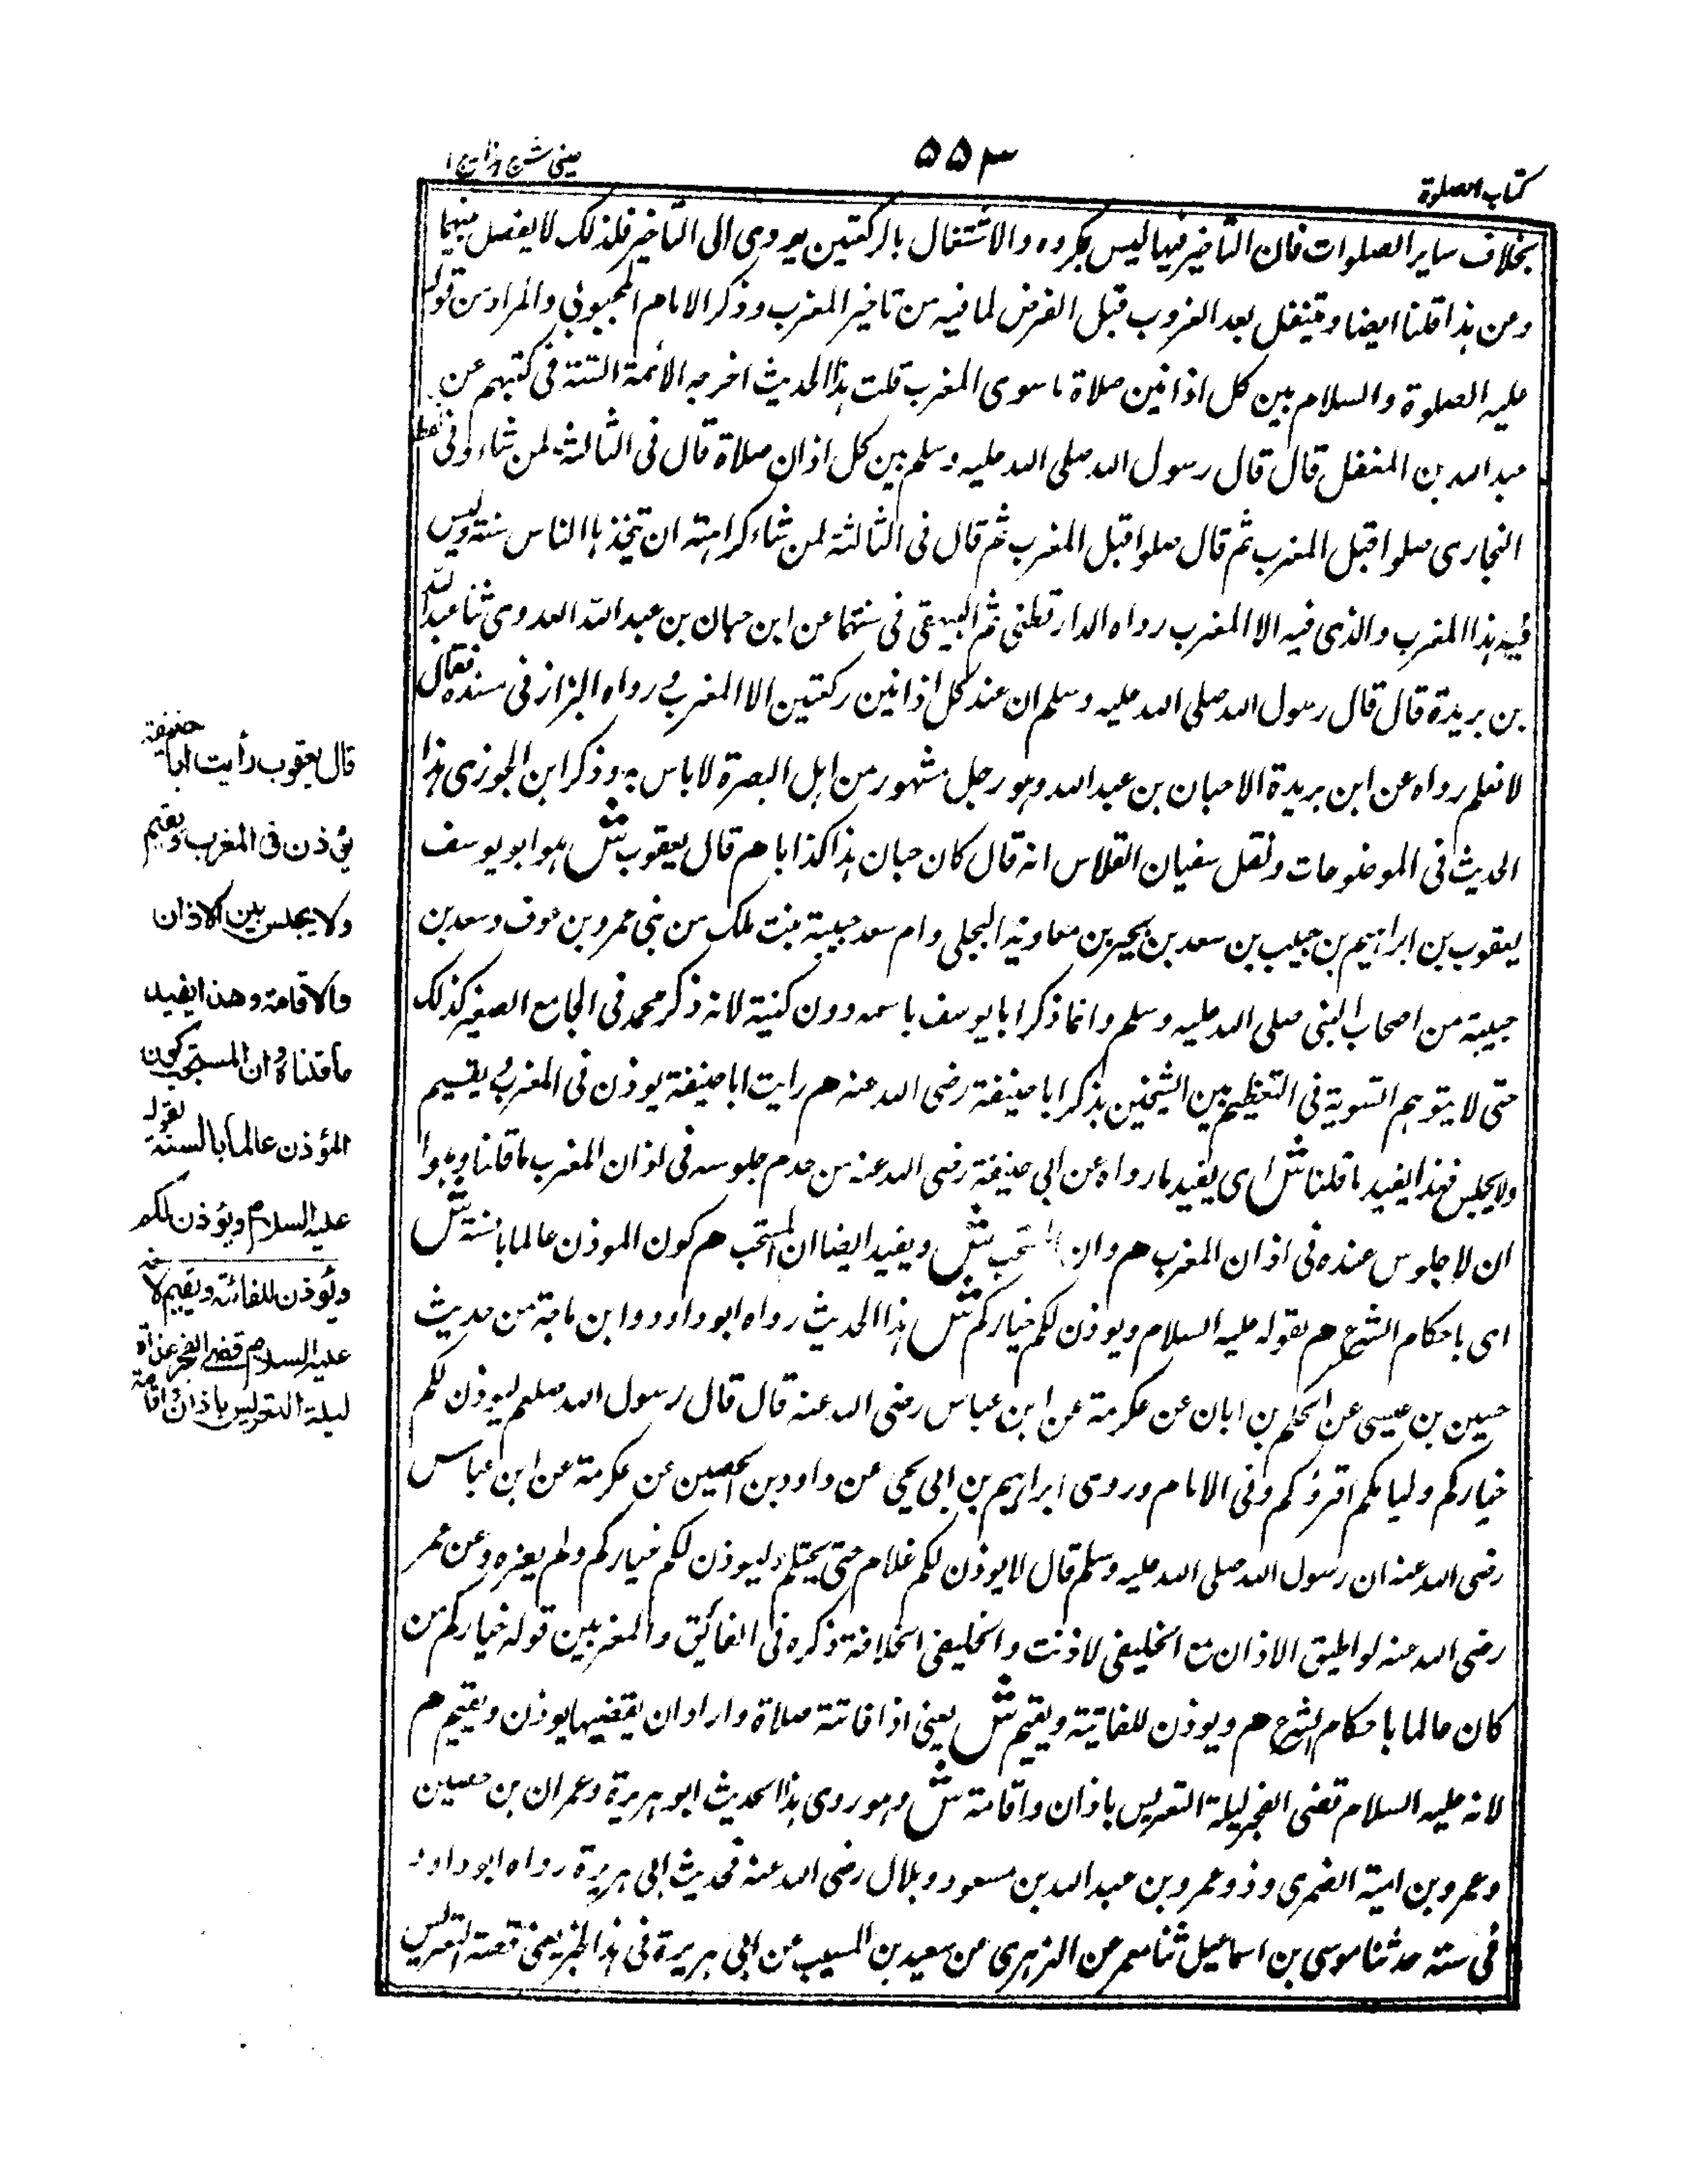 كتاب الصلوة
۵۵۳
عینی شرح ہدایہ ج ۱
بخلاف سایر الصلوات فان التأخیر فیہا لیس بمکروہ والاشتغال بالرکعتین یودی الی التأخیر فلذلک لا یفصل بینہما
ومن ہذا قلنا ایضا و یتنفل بعد الغروب قبل الفرض لما فیہ من تاخیر المغرب وذکر الامام المحبوبی والمراد من قولہ
علیہ الصلوة والسلام بین کل اذانین صلاة ما سوی المغرب قلت ہذا الحدیث اخرجہ الأئمة الستة فی کتبہم عن
عبد اللہ بن المغفل قال قال رسول اللہ صلی اللہ علیہ وسلم بین کل اذان صلاة قال فی الثالثة لمن شاء وفی لفظ
البخاری صلوا قبل المغرب ثم قال صلوا قبل المغرب ثم قال فی الثالثة لمن شاء کراہتہ ان تتخذہا الناس سنة ولیس
فیہ ہذا المغرب والذی فیہ الا المغرب رواہ الدارقطنی ثم البیہقی فی سننہما عن ابن حبان بن عبد اللہ العدوی ثنا عبد اللہ
بن بریدة قال قال رسول اللہ صلی اللہ علیہ وسلم ان عند کل اذانین رکعتین الا المغرب و رواہ البزار فی مسندہ فقال
لا نعلم رواہ عن ابن بریدة الا حبان بن عبد اللہ وہو رجل مشہور من اہل البصرة لا باس بہ وذکر ابن الجوزی ہذا
الحدیث فی الموضوعات ونقل سفیان الفلاس انہ قال کان حبان ہذا کذابا ھم قال یعقوب ش ہو ابو یوسف
یعقوب بن ابراہیم بن حبیب بن سعد بن بحیر بن معاویة البجلی وام سعد حبیبة بنت ملک من بنی عمرو بن عوف وسعد بن
حبیبة من اصحاب النبی صلی اللہ علیہ وسلم وانما ذکر ابا یوسف باسمہ دون کنیة لانہ ذکر محمد فی الجامع الصغیر کذلک
حتی لا یتوہم التسویة فی التعظیم بین الشیخین بذکر ابا حنیفة رضی اللہ عنہ ھم رایت ابا حنیفة یوذن فی المغرب و یقیم
ولا یجلس فہذا یفید ما قلنا ش ای یفید ما رواہ عن ابی حنیفة رضی اللہ عنہ من عدم جلوسہ فی اذان المغرب ما قلنا وہو
ان لا جلوس عندہ فی اذان المغرب ھم وان المستحب ش ویفید ایضا ان المستحب ھم کون الموذن عالما بالسنة ش
ای باحکام الشرع ھم بقولہ علیہ السلام ویوذن لکم خیارکم ش ہذا الحدیث رواہ ابو داود وابن ماجة من حدیث
حسین بن عیسی عن الحکم بن ابان عن عکرمة عن ابن عباس رضی اللہ عنہ قال قال رسول اللہ صلعم لیوذن لکم
خیارکم ولیامکم اقرؤکم وفی الامام وروی ابراہیم بن ابی یحیی عن داود بن الحصین عن عکرمة عن ابن عباس
رضی اللہ عنہ ان رسول اللہ صلی اللہ علیہ وسلم قال لا یوذن لکم غلام حتی یحتلم ولیوذن لکم خیارکم ولم یعزہ وعن عمر
رضی اللہ عنہ لو اطیق الاذان مع الخلیفی لاذنت والخلیفی الخلافة ذکرہ فی الفائق والمغربین قولہ خیارکم من
کان عالما باحکام الشرع ھم ویوذن للفائتة ویقیم ش یعنی اذا فاتتہ صلاة واراد ان یقضیہا یوذن ویقیم ھم
لانہ علیہ السلام قضی الفجر لیلة التعریس باذان واقامة ش وہو روی ہذا الحدیث ابو ہریرة وعمران بن حصین
وعمرو بن امیة الضمری وذو عمرو بن عبد اللہ بن مسعود وبلال رضی اللہ عنہ فحدیث ابی ہریرة رواہ ابو داود
فی سننہ حدثنا موسی بن اسماعیل ثنا معمر عن الزہری عن سعید بن المسیب عن ابی ہریرة فی ہذا الخبر یعنی قصة التعریس
قال یعقوب رأیت ابا حنیفة
یؤذن فی المغرب ویقیم
ولا یجلس بین الاذان
والاقامة وهذا یفید
ما قلناه وان المستحب کون
المؤذن عالما بالسنة لقوله
علیه السلام ویؤذن لکم
ویؤذن للفائتة ویقیم لانه
علیه السلام قضی الفجر غداة
لیلة التعریس باذان واقامة